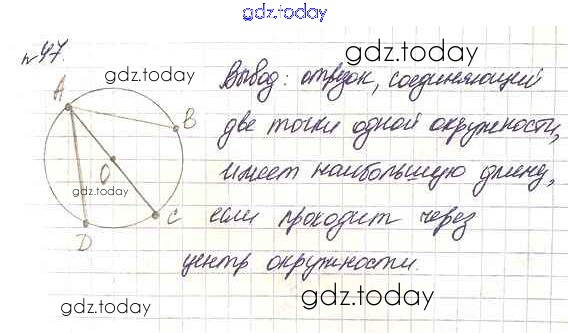 gdz.today
№47.
gdz.today
gdz.today
Вывод: отрезок, соединяющий
A
B
две точки одной окружности,
O
имеет наибольшую длину,
gdz.today
C
если проходит через
D
центр окружности.
gdz.today
gdz.today